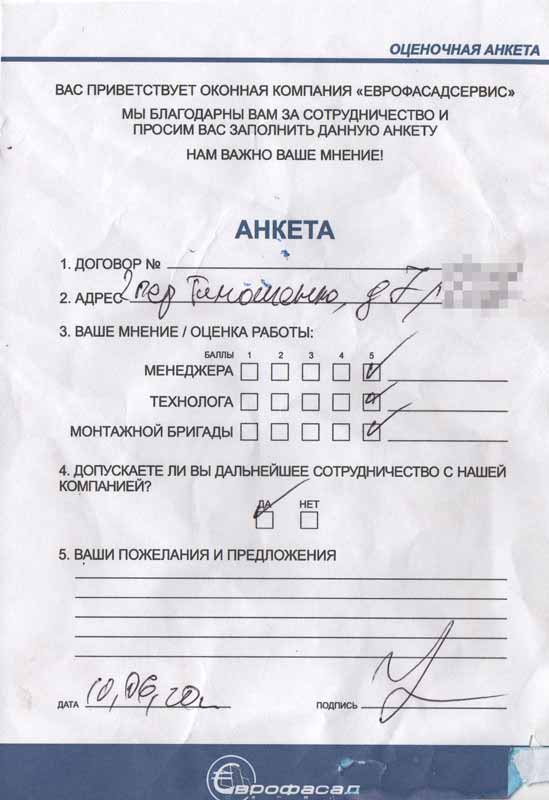 ОЦЕНОЧНАЯ АНКЕТА
ВАС ПРИВЕТСТВУЕТ ОКОННАЯ КОМПАНИЯ «ЕВРОФАСАДСЕРВИС»
МЫ БЛАГОДАРНЫ ВАМ ЗА СОТРУДНИЧЕСТВО И
ПРОСИМ ВАС ЗАПОЛНИТЬ ДАННУЮ АНКЕТУ
НАМ ВАЖНО ВАШЕ МНЕНИЕ!
АНКЕТА
1. ДОГОВОР №
2. АДРЕС 2 пер Тимошенко, д 7,
3. ВАШЕ МНЕНИЕ / ОЦЕНКА РАБОТЫ:
БАЛЛЫ 1 2 3 4 5
МЕНЕДЖЕРА
ТЕХНОЛОГА
МОНТАЖНОЙ БРИГАДЫ
4. ДОПУСКАЕТЕ ЛИ ВЫ ДАЛЬНЕЙШЕЕ СОТРУДНИЧЕСТВО С НАШЕЙ
КОМПАНИЕЙ?
ДА НЕТ
5. ВАШИ ПОЖЕЛАНИЯ И ПРЕДЛОЖЕНИЯ
ДАТА 10,06, ПОДПИСЬ
Еврофасад